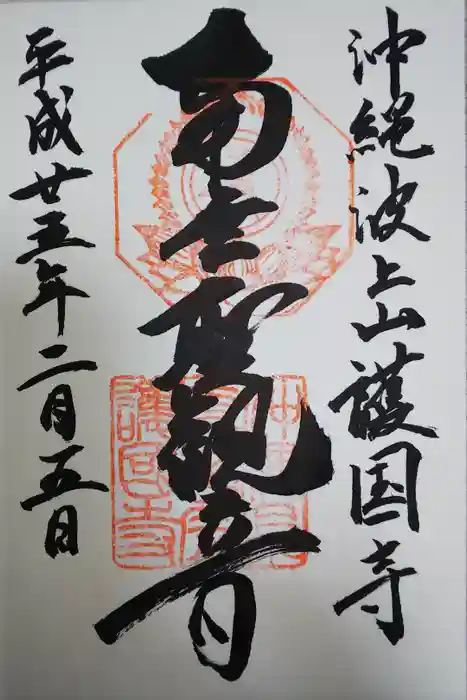 沖縄波上山護国寺
南无聖観音
平成廿五年二月五日